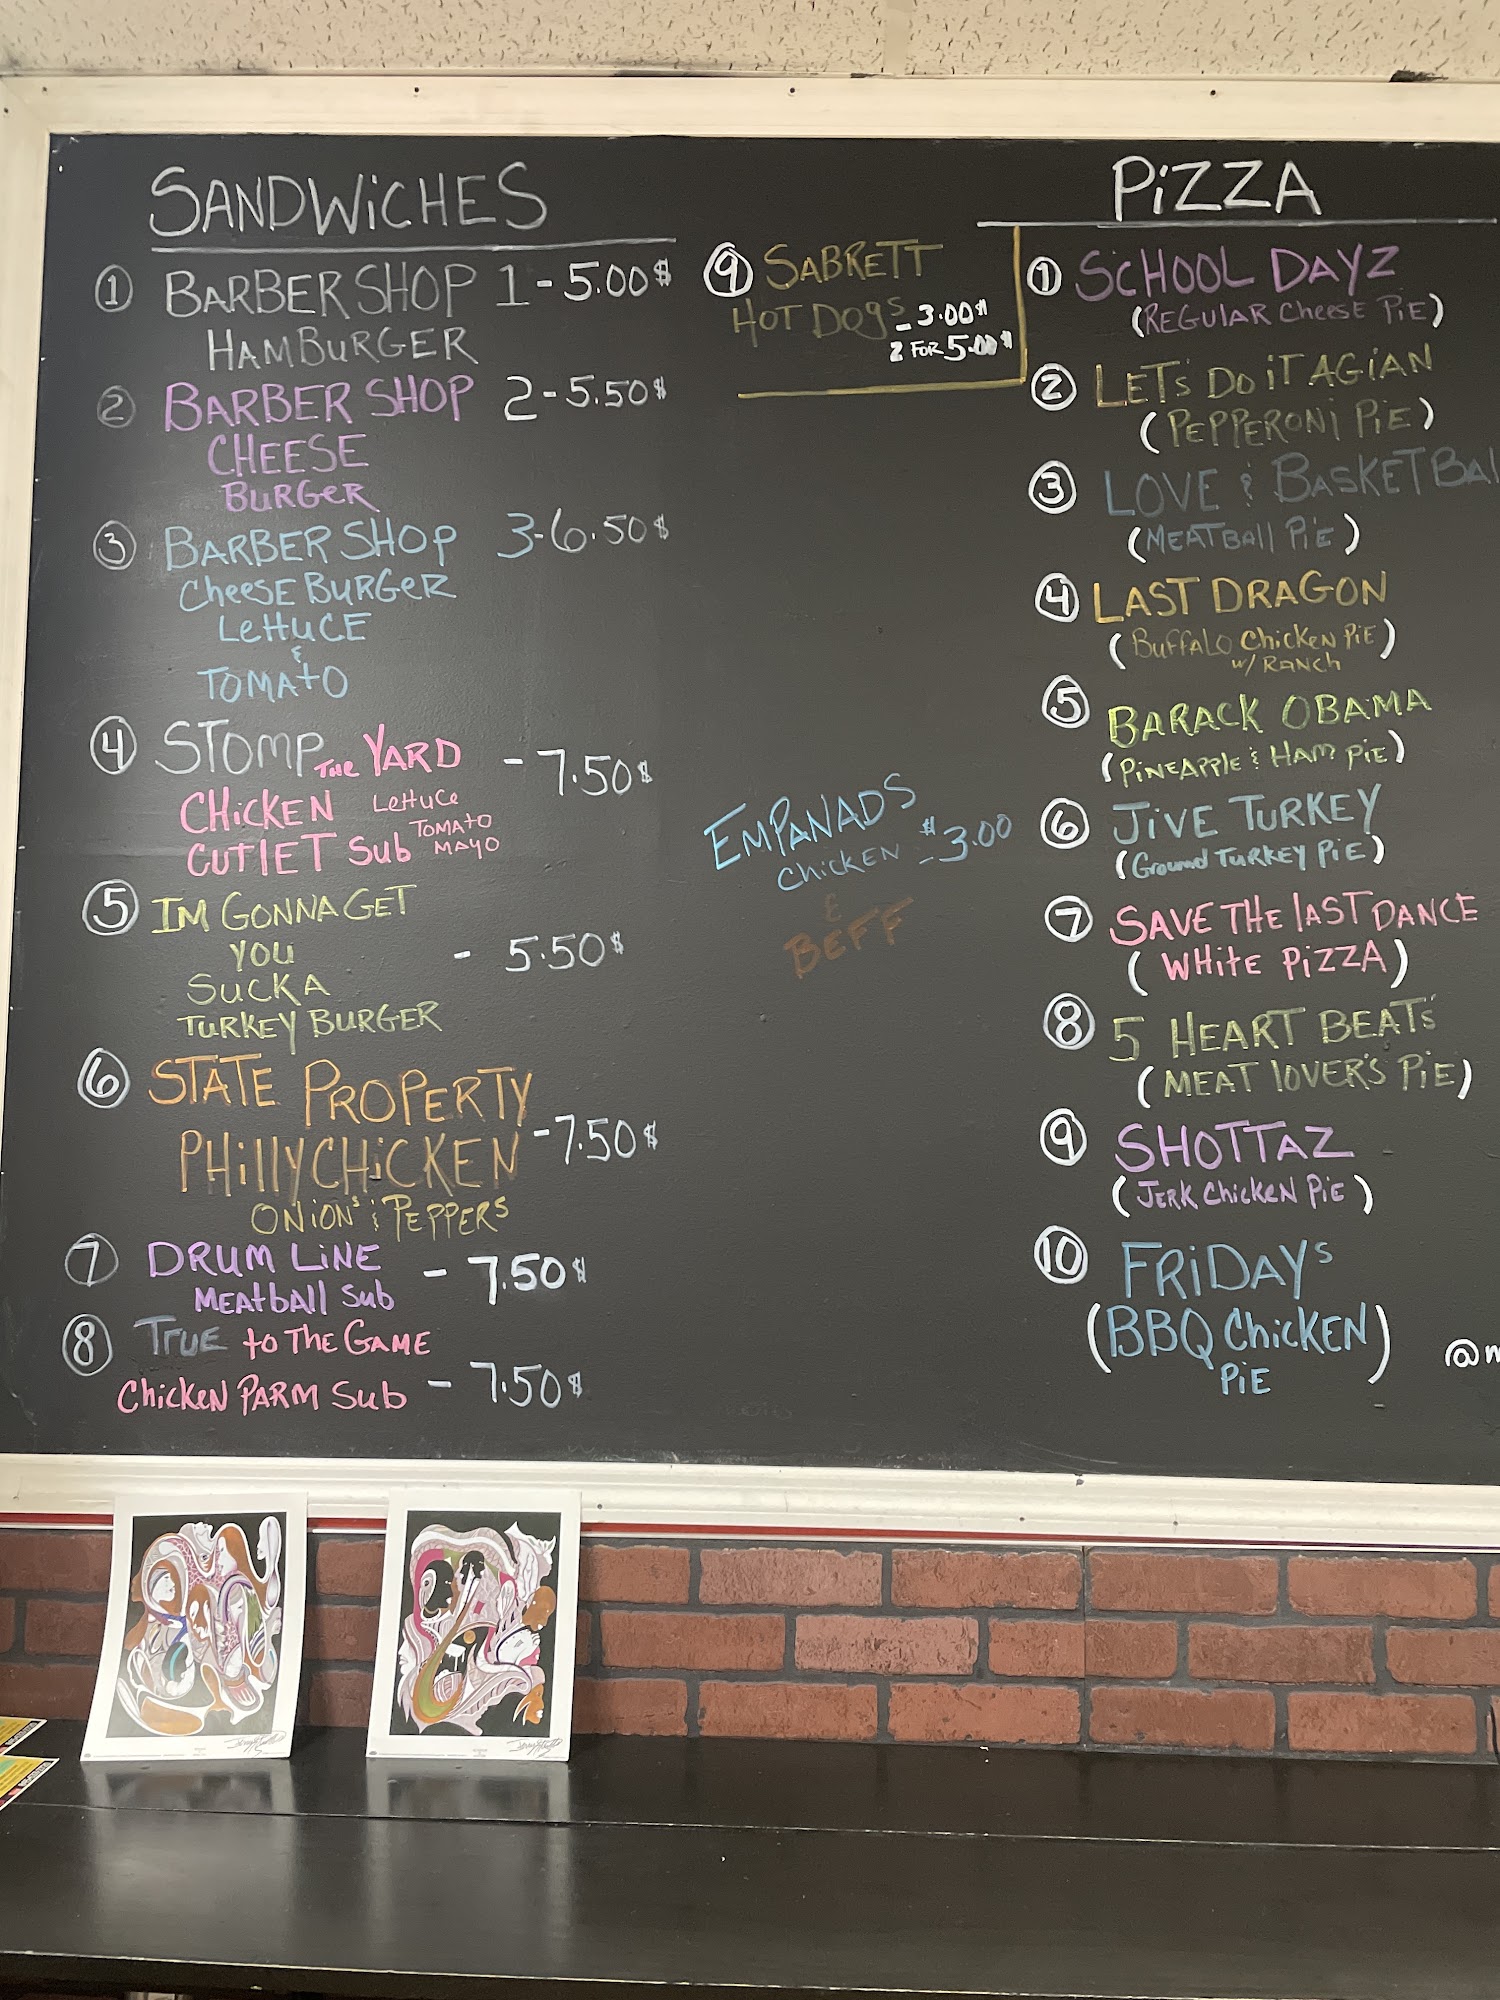 SANDWiCHES
① BARBER SHOP 1 - 5.00$
HAMBURGER
② BARBER SHOP 2 - 5.50$
CHEESE
BURGER
③ BARBER SHOP 3 - 6.50$
CheeSE BURGER
LettuCE
&
TOMAtO
④ STOMP THE YARD - 7.50$
CHiCKEN LettuCe
CUTlET Sub TOMATO
MAYO
⑤ IM GONNA GET
YOU - 5.50$
SUCKA
TURKEY BURGER
⑥ STATE PROPERTY
PHillY CHiCKEN - 7.50$
ONiONS & PEPPERS
⑦ DRUM LiNE - 7.50$
MEAtbAll Sub
⑧ TRUE to THE GAME
ChickeN PARM Sub - 7.50$
⑨ SABRETT
HOT DOgS - 3.00$
2 FOR 5.00$
EMPANADS
CHiCKEN - $3.00
&
BEFF
PiZZA
① SCHOOL DAYZ
(REGULAR CHeese PiE)
② LETs DO iT AGiAN
(PEPPERONi PiE)
③ LOVE & BASKETBAl
(MEATBAll PiE)
④ LAST DRAGON
(BUFFALO CHicKEN PiE)
w/ RANCH
⑤ BARACK OBAMA
(PiNEAPPlE & HAM PiE)
⑥ JiVE TURKEY
(GROUND TURKEY PiE)
⑦ SAVE THE lAST DANCE
(WHitE PiZZA)
⑧ 5 HEART BEATS
(MEAT lOVER'S PiE)
⑨ SHOTTAZ
(JERK CHicKEN PiE)
⑩ FRiDAYs
(BBQ CHicKEN)
PiE
@